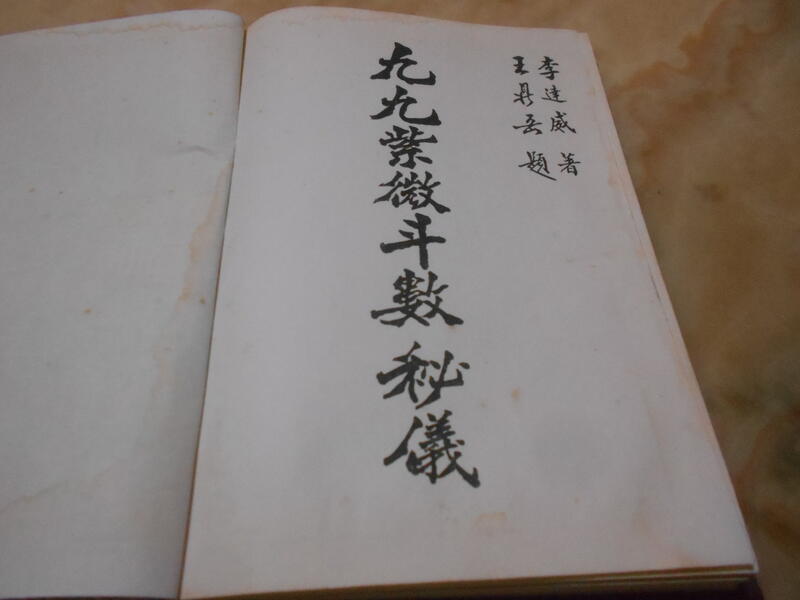 李達威 著
王鼎岳 題
九九紫微斗數秘儀